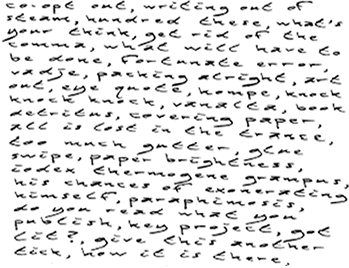 co-opt out, writing out of
steam, hundred these, what's
your think, get rid of the
comma, what will have to
be done, fortunate error,
vadje, packing alright, art
out, eye quote, hompe, knock
knock knock, vanatta, book
detritus, covering paper,
all is lost in the trance,
too much gutter, glue
swipe, paper brightness,
iodex thermogene grampus,
his chances of exonerating
himself, paraphimosis,
do you read what you
publish, key project, got
lit?, give this another
tick, how it is there,